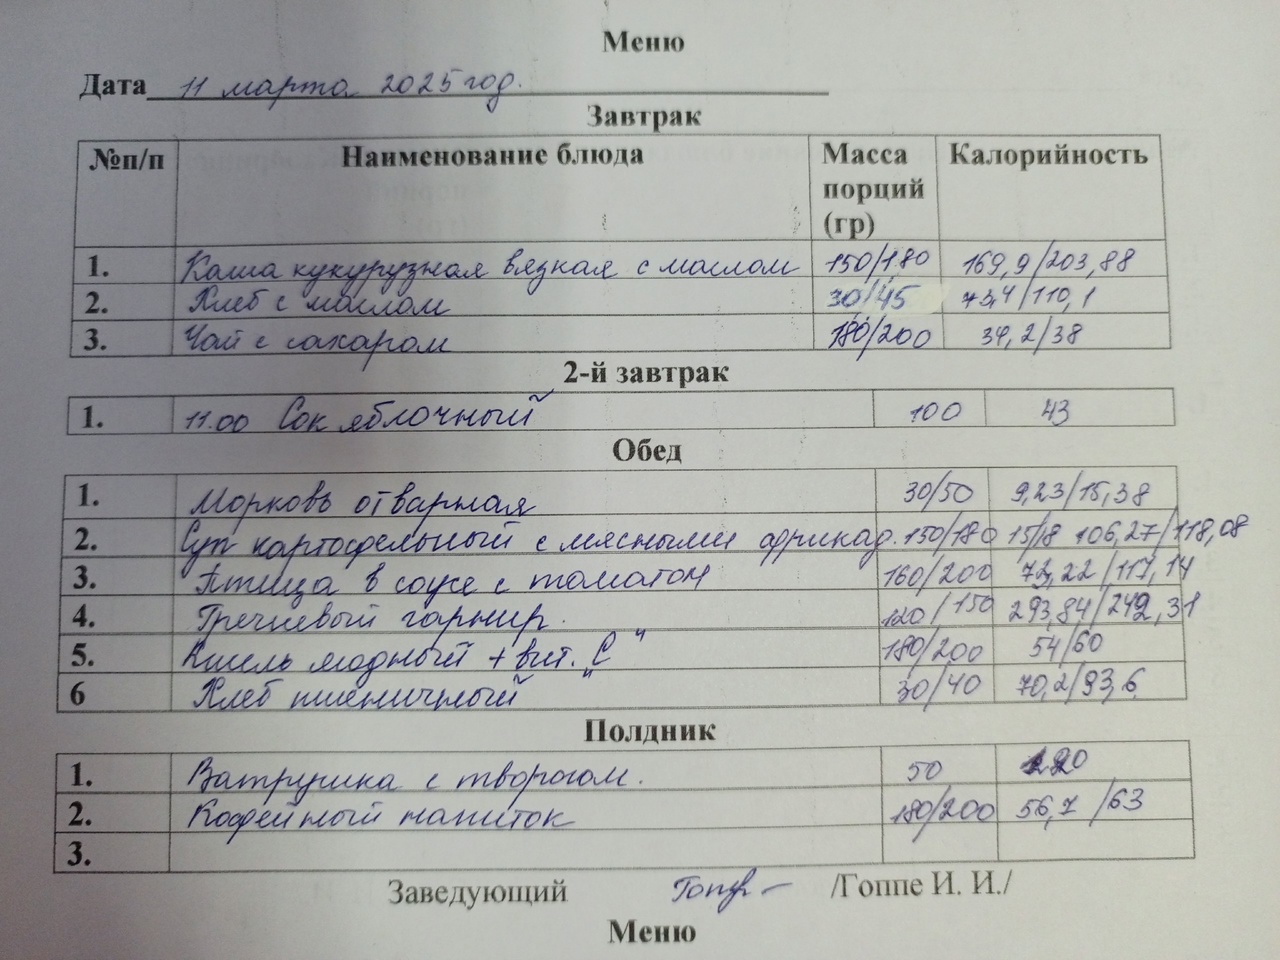 Меню
Дата 11 марта 2025 год.
Завтрак
№п/п Наименование блюда Масса порций (гр) Калорийность
1. Каша кукурузная вязкая с маслом 150/180 169,9/203,88
2. Хлеб с маслом 30/45 73,4/110,1
3. Чай с сахаром 180/200 34,2/38
2-й завтрак
1. 11.00 Сок яблочный 100 43
Обед
1. Морковь отварная 30/50 9,23/15,38
2. Суп картофельный с мясными фрикад. 150/180 15/18 106,27/118,08
3. Птица в соусе с томатом 160/200 73,22/117,14
4. Гречневый гарнир. 120/150 293,84/242,31
5. Кисель ягодный + вит. „С" 180/200 54/60
6 Хлеб пшеничный 30/40 70,2/93,6
Полдник
1. Ватрушка с творогом. 50
2. Кофейный напиток 180/200 56,7/63
3.
Заведующий /Гоппе И. И./
Меню